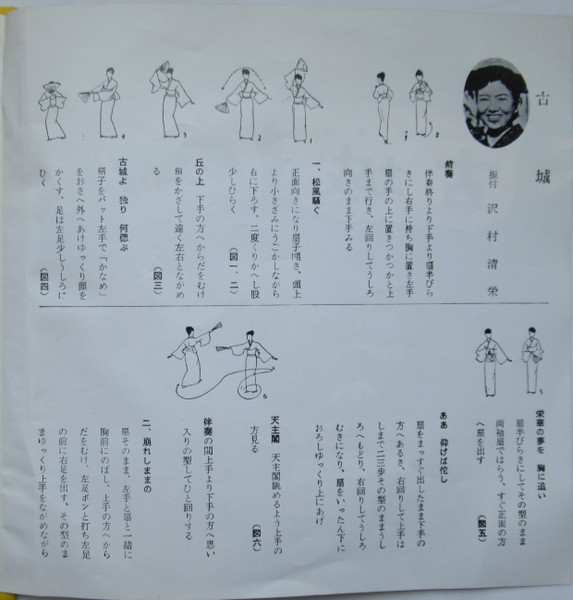 古城
振付 沢村清栄
前奏
伴奏終りより下手より扇半びら
きにし右手に持ち胸に置き左手
扇の手の上に置きつかつかと上
手まで行き、左回りしてうしろ
向きのまま下手みる
一、松風騒ぐ
正面向きになり扇子開き、頭上
より小きざみにうごかしながら
右に下ろす、二度くりかへし股
少しひらく (図一、二)
丘の上 下手の方へからだをむけ
扇をかざして遠く左右とながめ
る (図三)
古城よ 独り 何偲ぶ
扇子をパット左手で「かなめ」
をおさへ外へあけゆっくり顔を
かくす、足は左足少しうしろに
ひく (図四)
栄華の夢を 胸に追い
扇半びらきにしてその型のまま
両袖扇ではらう、すぐ正面の方
へ扇を出す (図五)
ああ 仰げば佗し
扇をまっすぐ出したまま下手の
方へあるき、右回りして上手は
しまで二三歩その型のままうし
ろへもどり、右回りしてうしろ
むきになり、扇をいったん下に
おろしゆっくり上にあげ
天主閣 天主閣眺めるよう上手の
方見る (図六)
伴奏の間上手より下手の方へ思い
入りの型してひと回りする
二、崩れしままの
扇そのまま、左手と扇と一緒に
胸前にのばし、上手の方へから
だをむけ、左足ポンと打ち左足
の前に右足を出す、その型のま
まゆっくり上手をながめながら